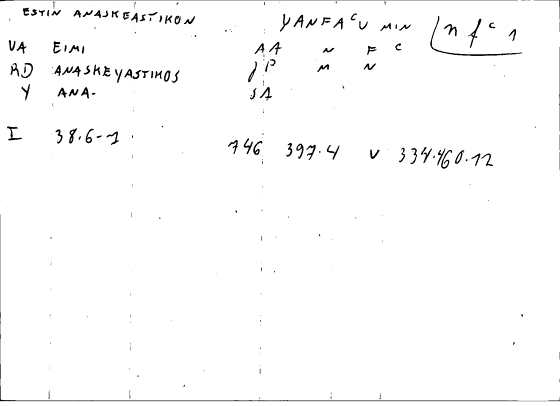 ESTIN ANASKEASTIKON YANFACU MIN n f c 1
VA EIMI AA N F C
RD ANASKEYASTIKOS JP M N
Y ANA- SA
I 38.6-1 746 397.4 V 334.460.12